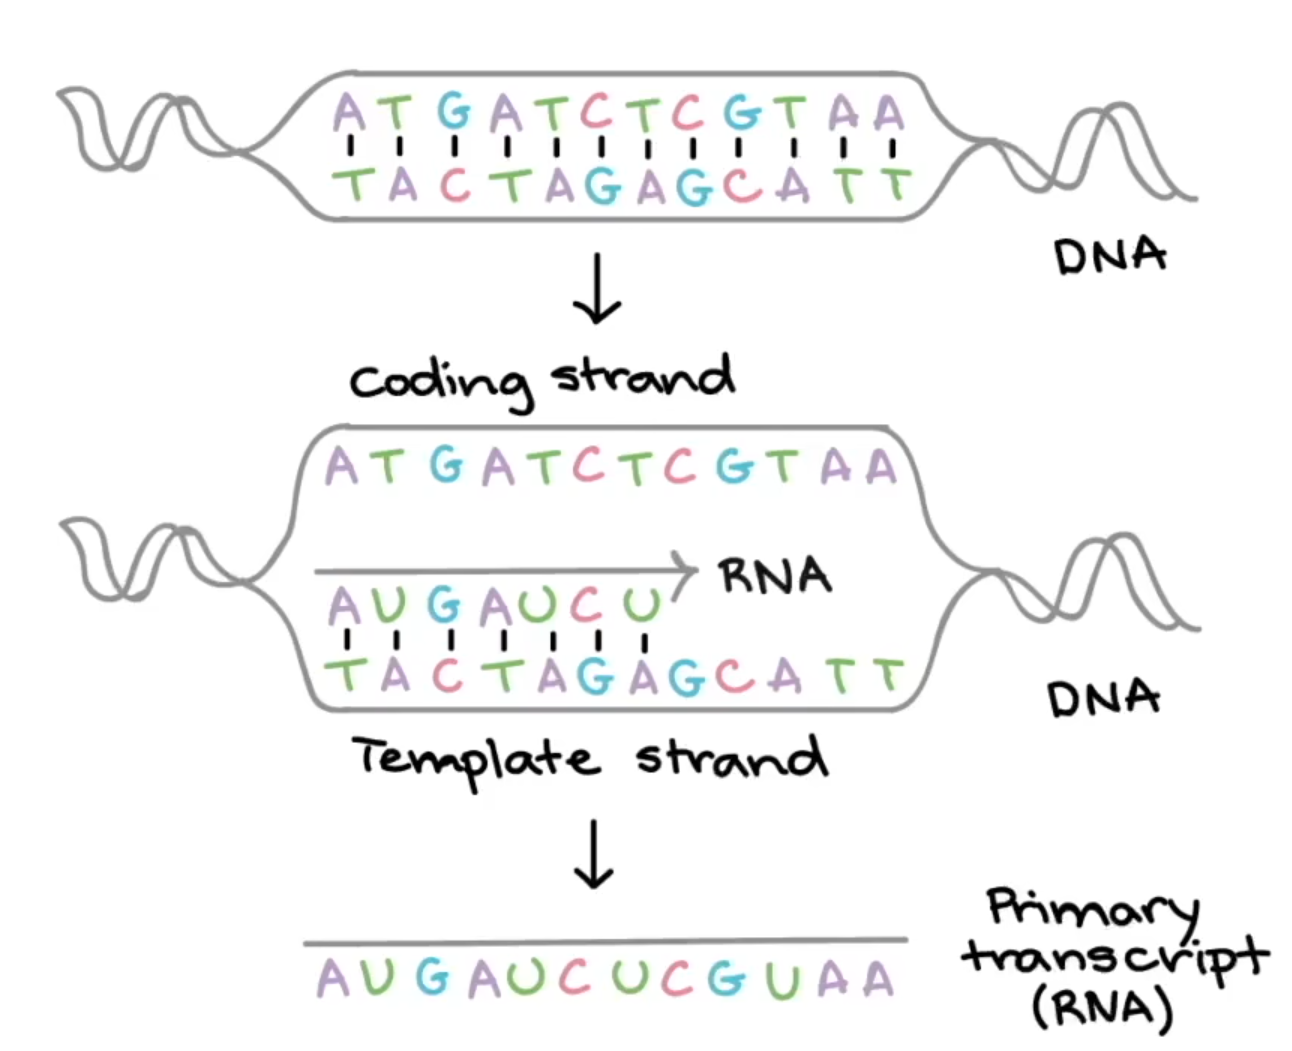 A T G A T C T C G T A A
T A C T A G A G C A T T
DNA
Coding strand
A T G A T C T C G T A A
RNA
A U G A U C U
T A C T A G A G C A T T
DNA
Template strand
Primary
transcript
(RNA)
A U G A U C U C G U A A